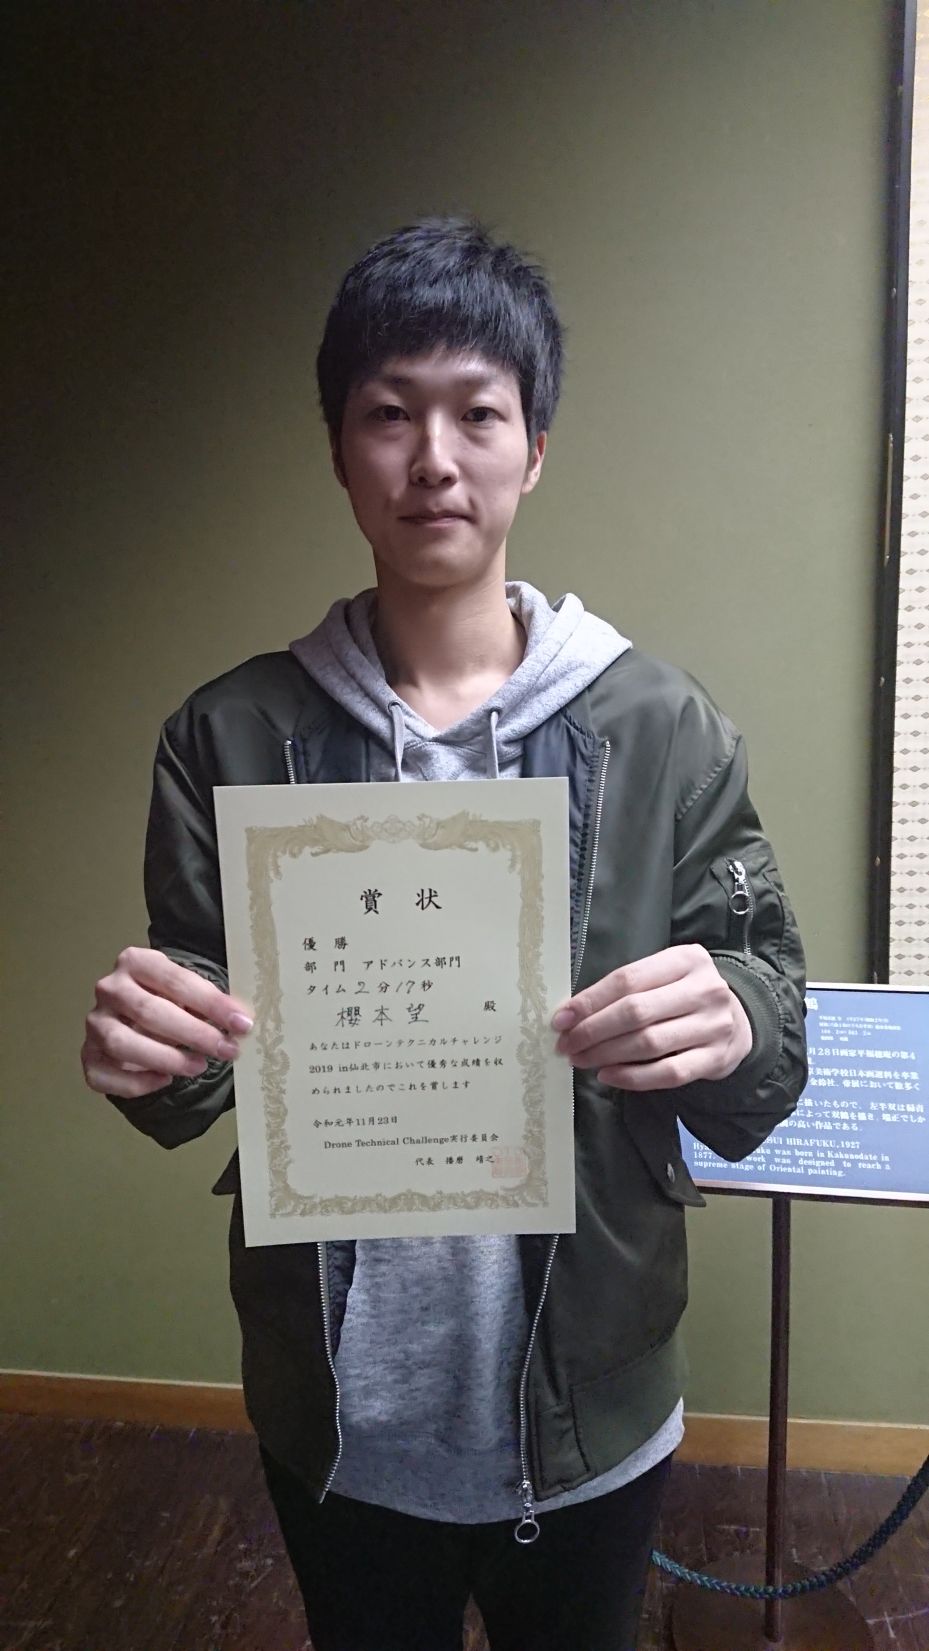 賞 状
優 勝
部 門 アドバンス部門
タイム 2 分 17 秒
櫻本望 殿
あなたはドローンテクニカルチャレンジ
2019 in仙北市において優秀な成績を収
められましたのでこれを賞します
令和元年11月23日
Drone Technical Challenge実行委員会
代表 播磨 靖之
鶴
月28日画家平福穂庵の第4
美術学校日本画選科を卒業
金鈴社、帝展において数多く
に描いたもので、左半双は緑青
によって双鶴を描き、端正でしか
の高い作品である。
SUI HIRAFUKU,1927
uku was born in Kakunodate in
1877. work was designed to reach a
supreme stage of Oriental painting.